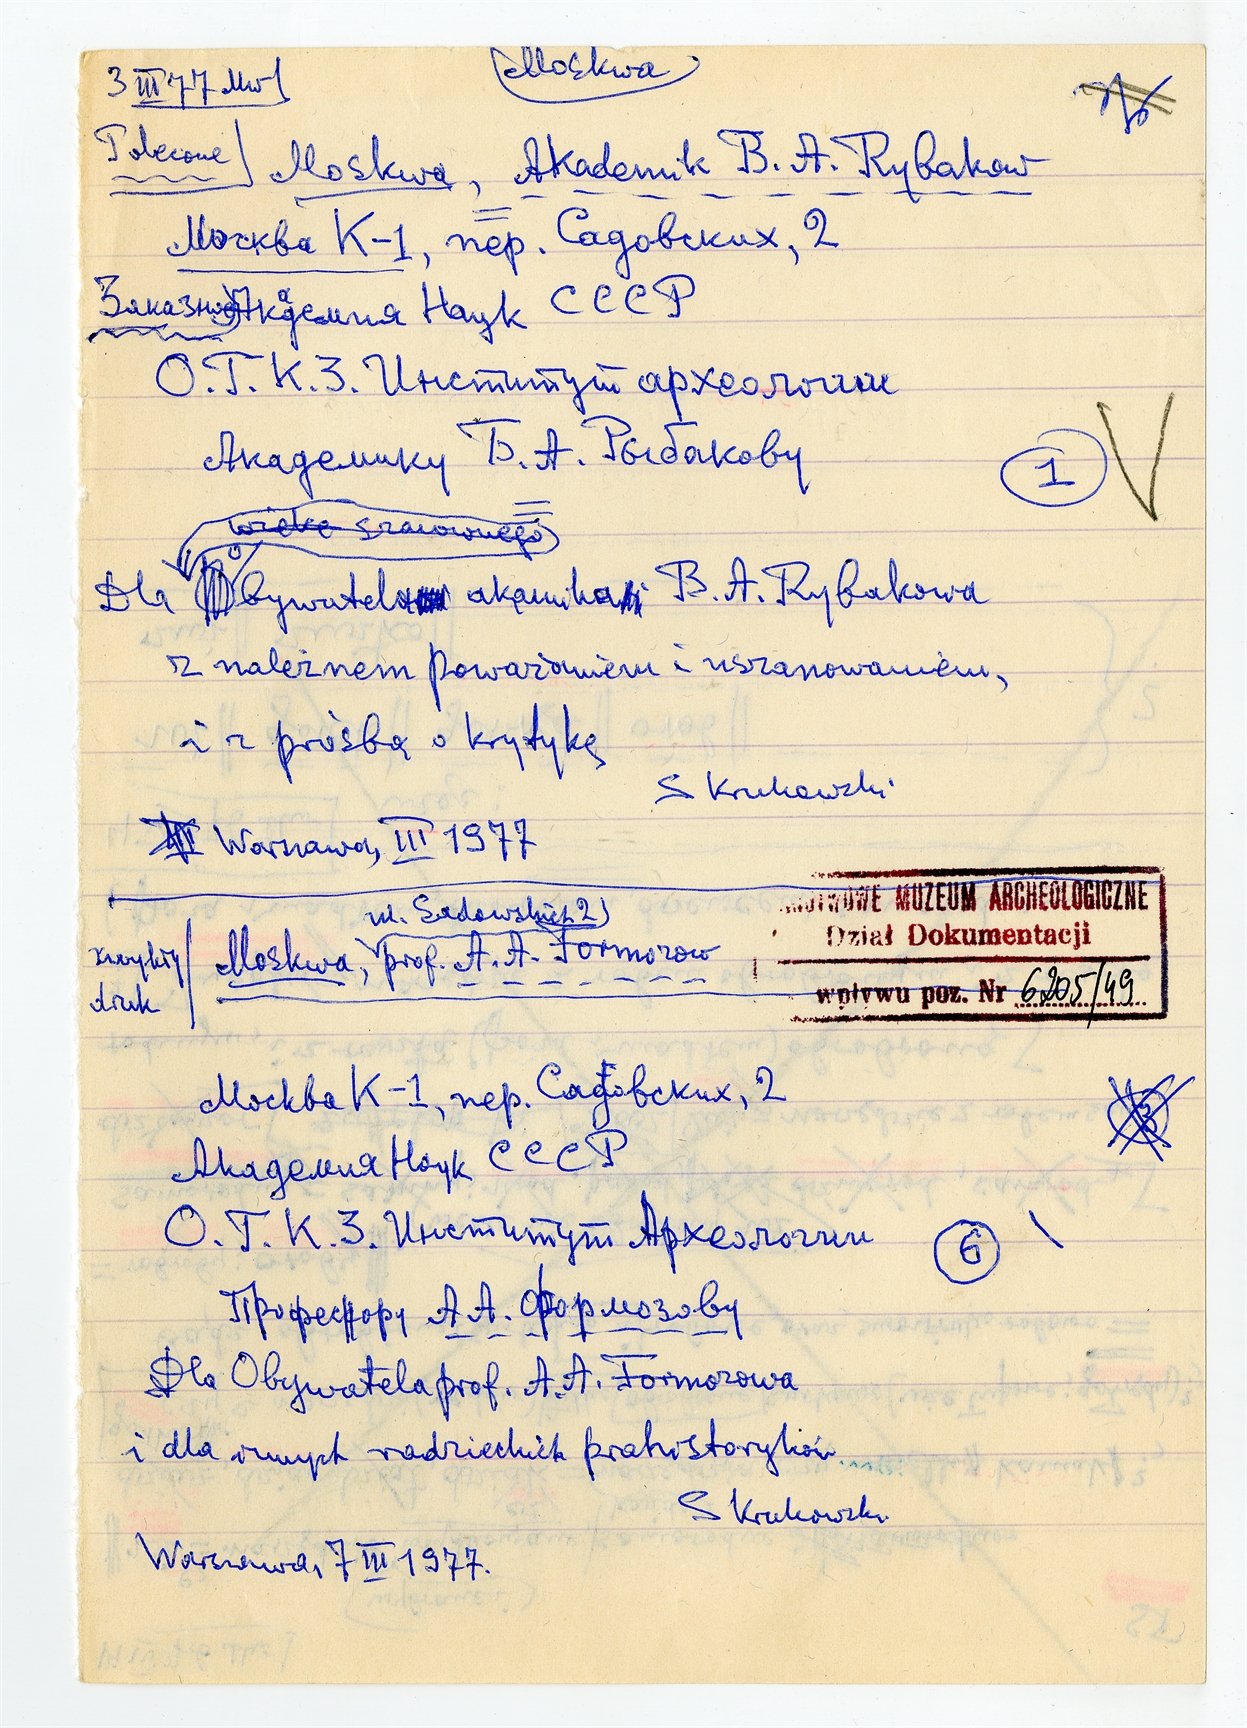 3 III 77 Mw
Moskwa
Polecone Moskwa, Akademik B. A. Rybakow
Москва К-1, пер. Садовских, 2
Заказное Академия Наук СССР
О.Т.К.З. Институт археологии
Академику Б. А. Рыбакову
1
wielce szanownego
Dla Obywatela akamika B. A. Rybakowa
z należnem poważaniem i uszanowaniem,
i z prośbą o krytykę
S Krukowski
Warszawa, III 1977
PAŃSTWOWE MUZEUM ARCHEOLOGICZNE
Dział Dokumentacji
wpływu poz. Nr 6205/49
ul. Sadowskich 2
zwykły druk Moskwa, prof. A. A. Formozow
Москва К-1, пер. Садовских, 2
3
Академия Наук СССР
О.Т.К.З. Институт Археологии
6
Професору А А. Формозову
Dla Obywatela prof. A. A. Formozowa
i dla innych radzieckich prahistoryków
S Krukowski
Warszawa, 7 III 1977.